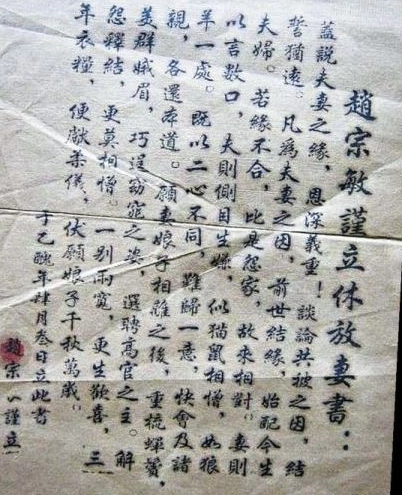 趙宗敏謹立休放妻書：
蓋説夫妻之緣，恩深義重！談論共被之因，結
誓猶遠。凡為夫妻之因，前世結緣，始配今生
夫婦。若緣不合，比是怨家，故來相對。妻則
以言數口，夫則側目生嫌，似猫鼠相憎，如狼
羊一處。既以二心不同，難歸一意，快會及諸
親，各還本道。願妻娘子相離之後，重梳蟬鬢，
美群娥眉，巧逞窈窕之姿，選聘高官之主。解
怨釋結，更莫相憎。一別兩寬，更生歡喜，三
年衣糧，便獻柔儀，伏願娘子千秋萬歲。
于乙醜年肆月叁日立此書
趙宗 謹立